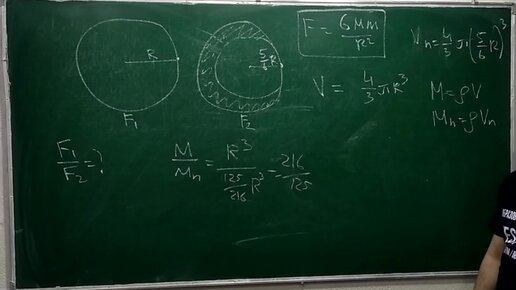 R
F₁
5/6 R
F₂
F = 6mm/R²
V = 4/3 πR³
Vₙ = 4/3 π(5/6 R)³
M = ρV
Mₙ = ρVₙ
F₁/F₂ = ?
M/Mₙ = R³/(125/216 R³) = 216/125
ES